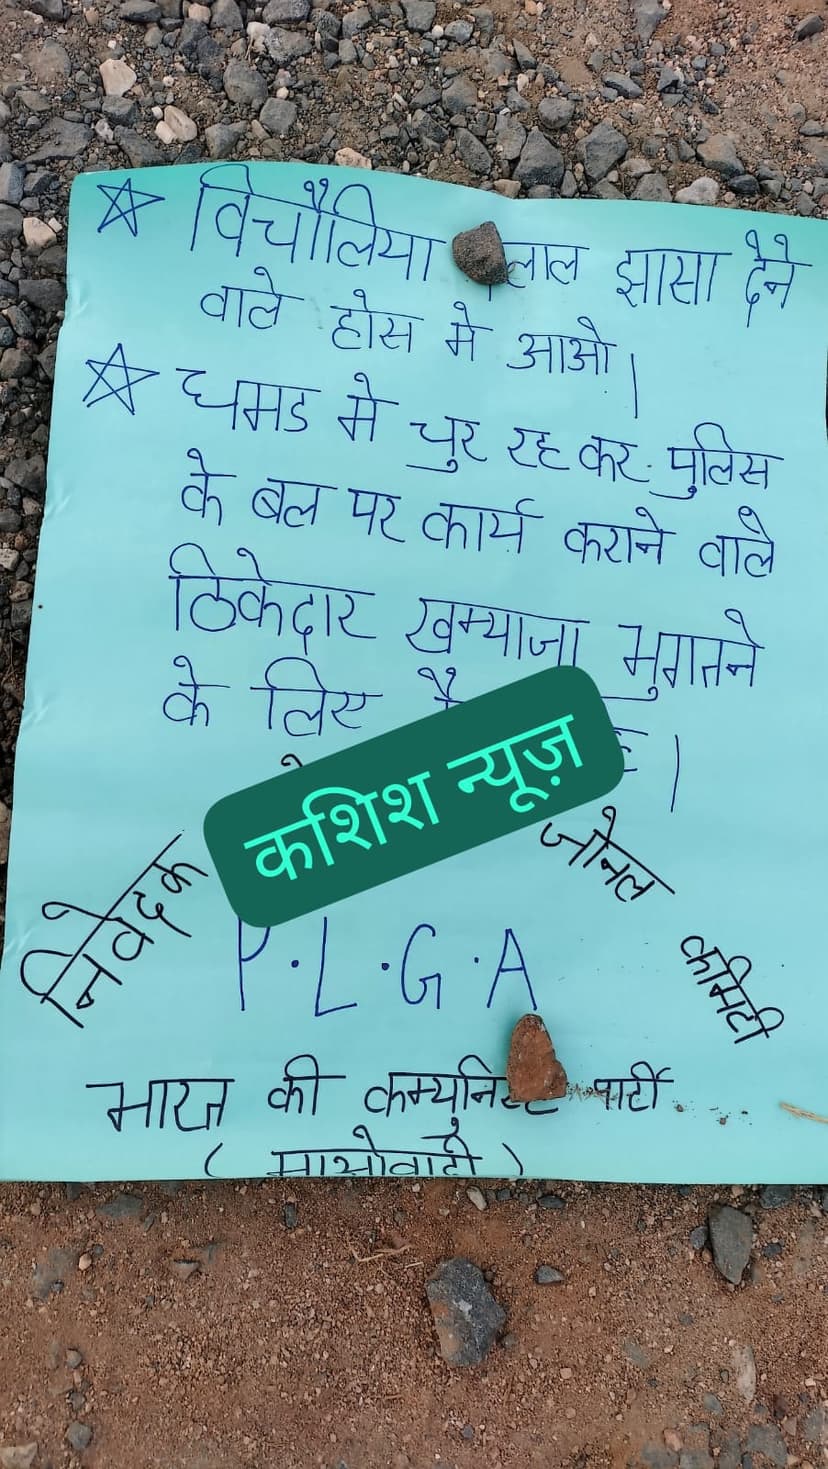 ☆ विचौलिया लाल झासा देने
वाले होस मे आओ।
☆ घमड मे चुर रह कर पुलिस
के बल पर कार्य कराने वाले
ठिकेदार खम्याजा भुगतने
के लिए
कशिश न्यूज़
निवेदक
जोनल कमिटी
P.L.G.A
भारत की कम्युनिस्ट पार्टी
(माओवादी)